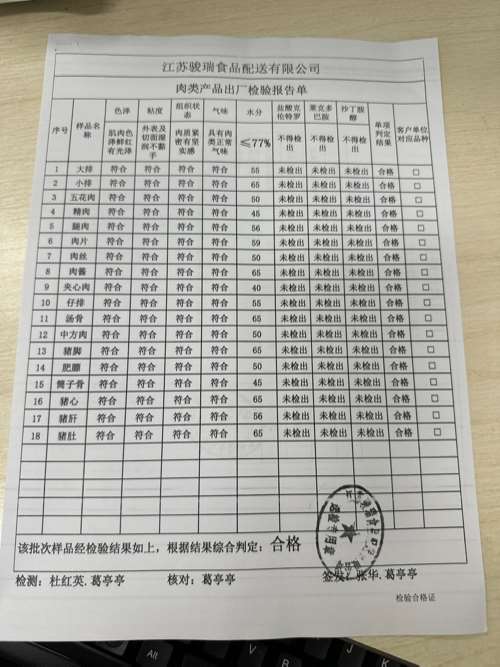 江苏骏瑞食品配送有限公司
肉类产品出厂检验报告单
序号 样品名称 色泽 粘度 组织状态 气味 水分 盐酸克伦特罗 莱克多巴胺 沙丁胺醇 单项判定结果 客户单位对应品种
肌肉色泽鲜红有光泽 外表及切面湿润不黏手 肉质紧密有坚实感 具有肉类正常气味 ≤77% 不得检出 不得检出 不得检出
1 大排 符合 符合 符合 符合 55 未检出 未检出 未检出 合格 □
2 小排 符合 符合 符合 符合 65 未检出 未检出 未检出 合格 □
3 五花肉 符合 符合 符合 符合 50 未检出 未检出 未检出 合格 □
4 精肉 符合 符合 符合 符合 45 未检出 未检出 未检出 合格 □
5 腿肉 符合 符合 符合 符合 56 未检出 未检出 未检出 合格 □
6 肉片 符合 符合 符合 符合 59 未检出 未检出 未检出 合格 □
7 肉丝 符合 符合 符合 符合 50 未检出 未检出 未检出 合格 □
8 肉酱 符合 符合 符合 符合 65 未检出 未检出 未检出 合格 □
9 夹心肉 符合 符合 符合 符合 40 未检出 未检出 未检出 合格 □
10 仔排 符合 符合 符合 符合 55 未检出 未检出 未检出 合格 □
11 汤骨 符合 符合 符合 符合 65 未检出 未检出 未检出 合格 □
12 中方肉 符合 符合 符合 符合 50 未检出 未检出 未检出 合格 □
13 猪脚 符合 符合 符合 符合 65 未检出 未检出 未检出 合格 □
14 肥膘 符合 符合 符合 符合 50 未检出 未检出 未检出 合格 □
15 筒子骨 符合 符合 符合 符合 45 未检出 未检出 未检出 合格 □
16 猪心 符合 符合 符合 符合 65 未检出 未检出 未检出 合格 □
17 猪肝 符合 符合 符合 符合 56 未检出 未检出 未检出 合格 □
18 猪肚 符合 符合 符合 符合 65 未检出 未检出 未检出 合格 □
该批次样品经检验结果如上，根据结果综合判定：合格
检测：杜红英.葛亭亭 核对：葛亭亭 签发：张华.葛亭亭
检验合格证